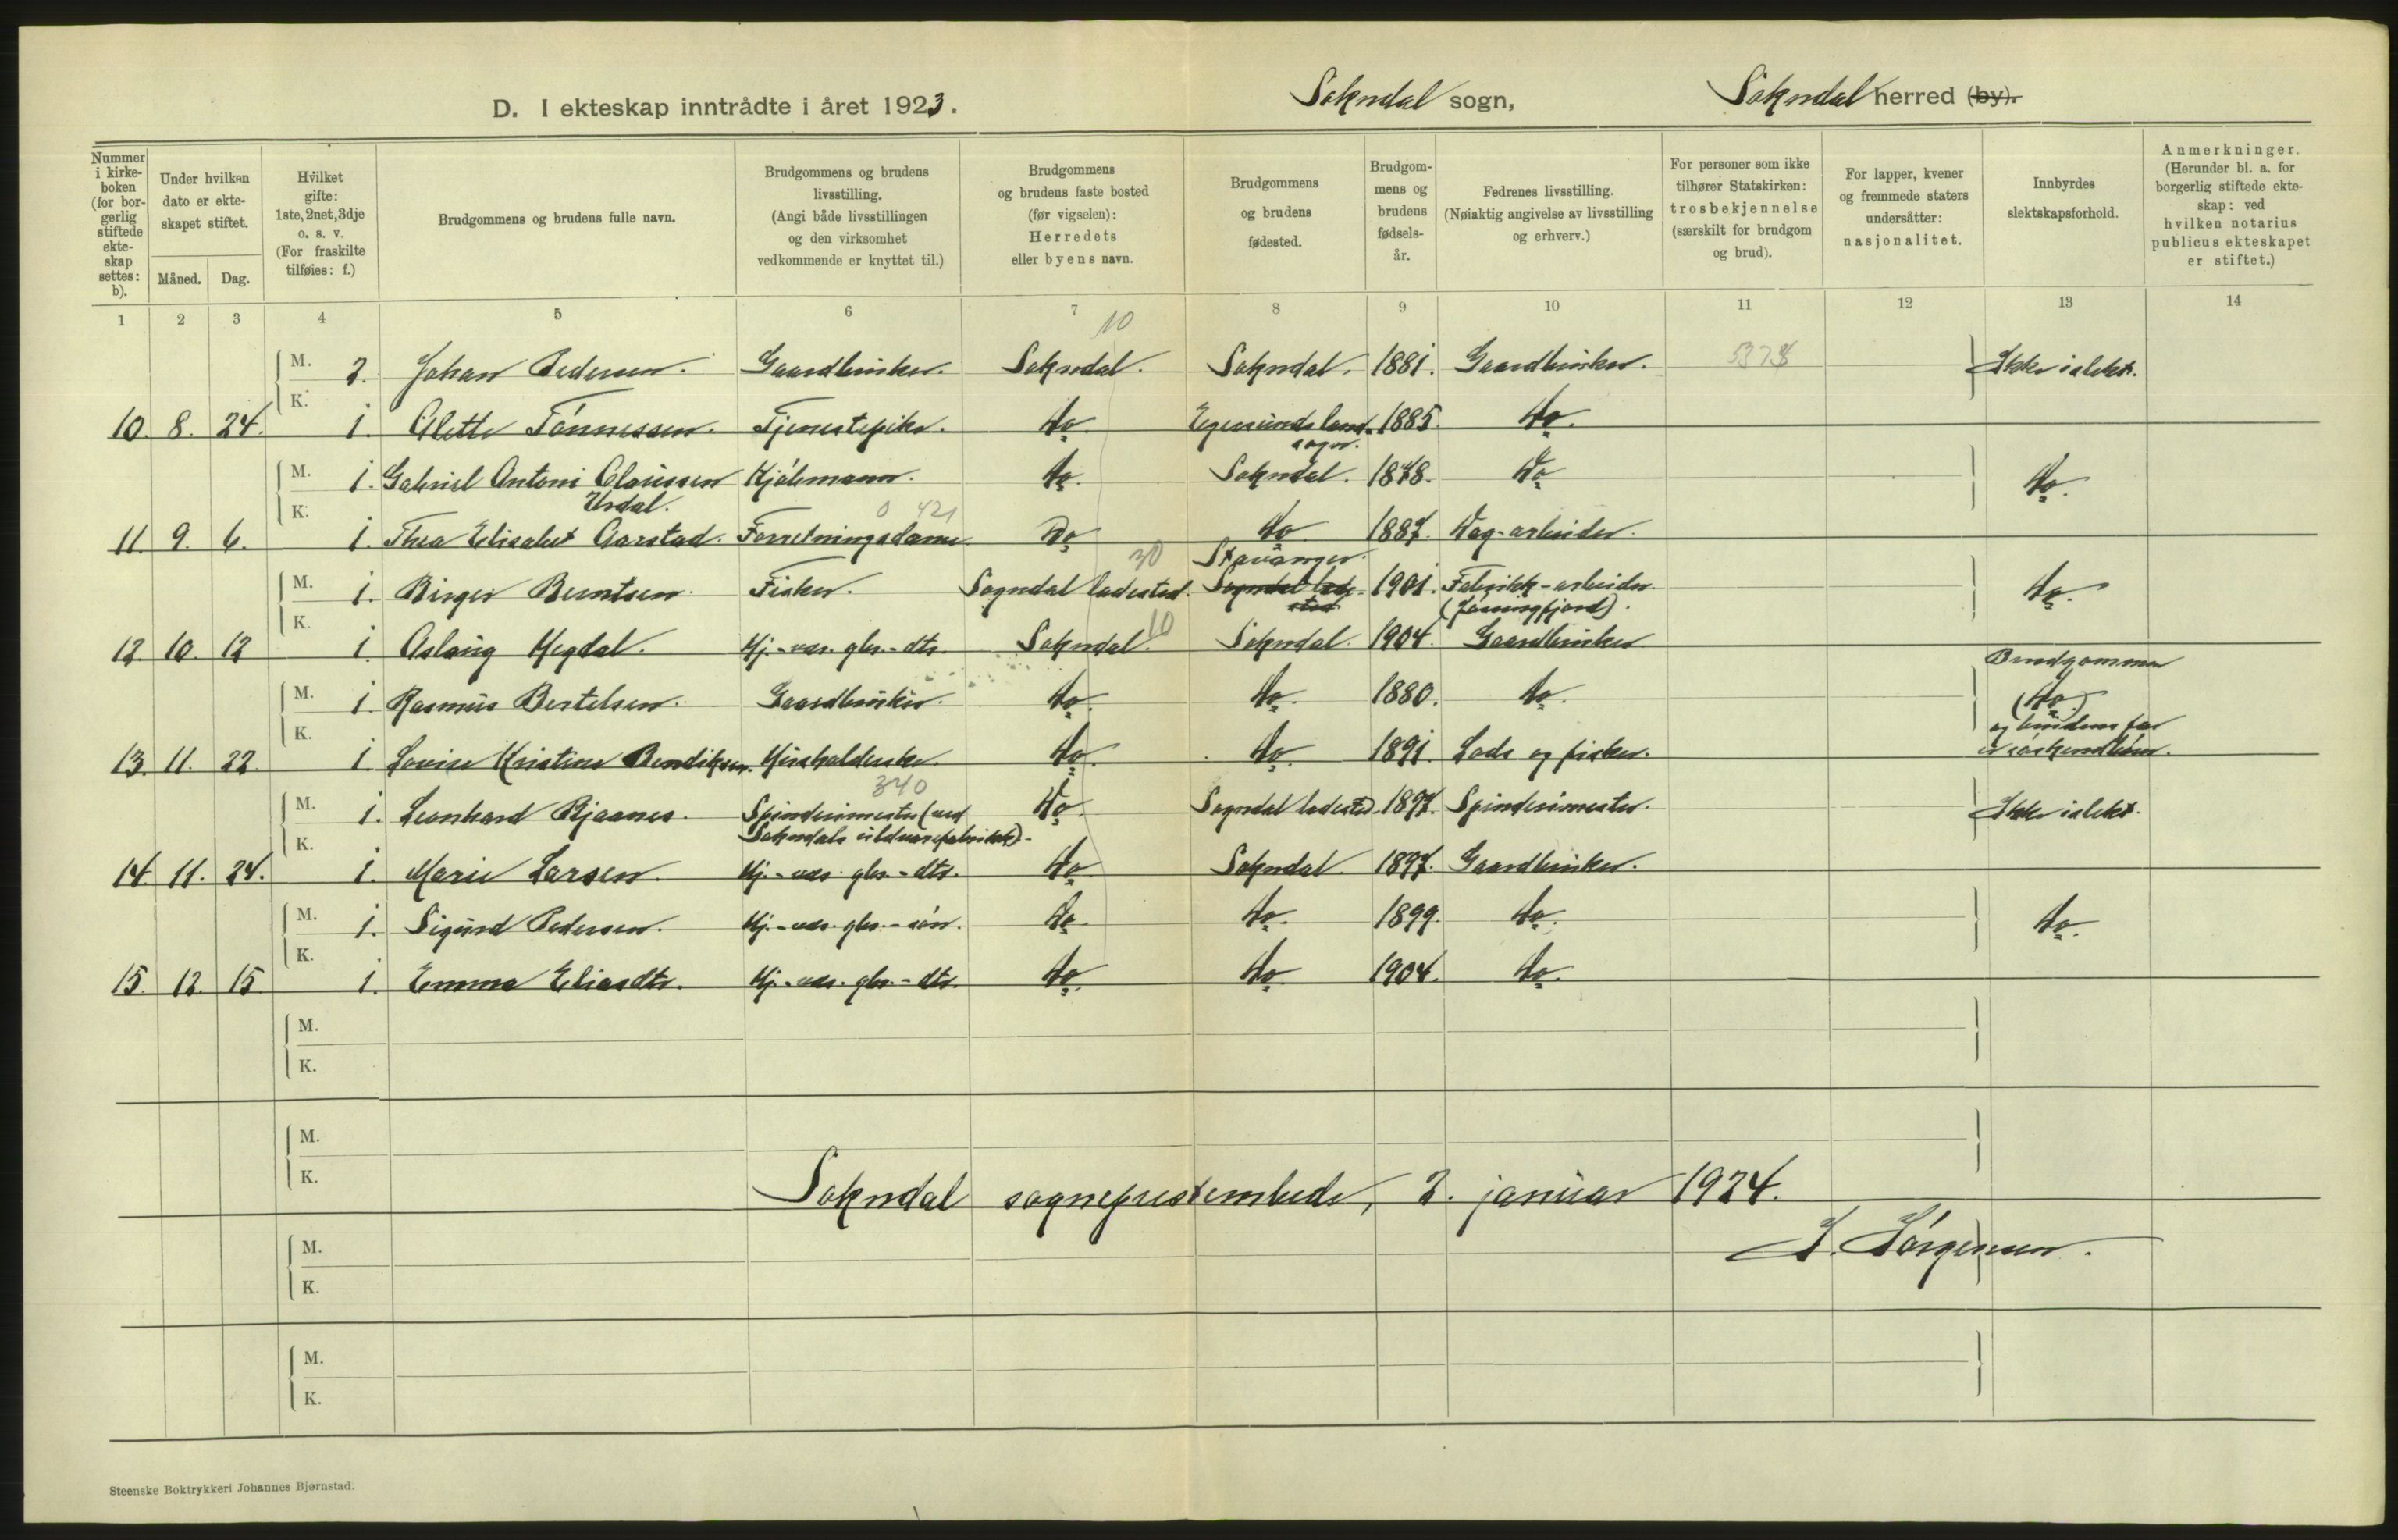 D. I ekteskap inntrådte i året 1923. Sokndal sogn, Sokndal herred (by).
Nummer i kirkeboken (for borgerlig stiftede ekteskap settes: b).
Under hvilken dato er ekteskapet stiftet.
Måned. Dag.
Hvilket gifte: 1ste, 2net, 3dje o. s. v. (For fraskilte tilføies: f.)
Brudgommens og brudens fulle navn.
Brudgommens og brudens livsstilling. (Angi både livsstillingen og den virksomhet vedkommende er knyttet til.)
Brudgommens og brudens faste bosted (før vigselen): Herredets eller byens navn.
Brudgommens og brudens fødested.
Brudgommens og brudens fødselsår.
Fedrenes livsstilling. (Nøiaktig angivelse av livsstilling og erhverv.)
For personer som ikke tilhører Statskirken: trosbekjennelse (særskilt for brudgom og brud).
For lapper, kvener og fremmede staters undersåtter: nasjonalitet.
Innbyrdes slektskapsforhold.
Anmerkninger. (Herunder bl. a. for borgerlig stiftede ekteskap: ved hvilken notarius publicus ekteskapet er stiftet.)
1 2 3 4 5 6 7 8 9 10 11 12 13 14
10
M. 2. Johan Pedersen. Gaardbruker. Sokndal. Sokndal. 1881. Gaardbruker. Ikke i slekt.
K.
10. 8. 24. 1. Alette Tónnessen. Tjenestepike. do. Egersunds landsogn. 1885. do.
M. 1. Gabriel Antoni Claussen Urdal. Kjólemann. do. Sokndal. 1878. do do.
K. 0 421
11. 9. 6. 1. Thea Elisabet Aarstad. Forretningsdame. do do. 1887. Dag-arbeider.
30 Stavanger.
M. 1. Birger Berntsen. Fisker. Sogndal ladested. Sogndal ladested 1901. Fabrikk-arbeider (Jóssingfjord). do.
K. 10
12 10. 12 1. Aslaug Hegdal. Hj.-vær. gbr.-dtr. Sokndal. Sokndal. 1904. Gaardbruker
M. 1. Rasmus Bertelsen. Gaardbruker. do. do. 1880. do. Brudgommen (do.) og brudens far er sóskendbórn.
K.
13. 11. 22. 1. Lovise Kristine Bendiksen. Husholderske. do. do. 1891. Lods og fisker.
340
M. 1. Leonhard Bjaanes. Spinderimester (ved Sokndals uldvarefabrikk). do Sogndal ladested. 1897. Spinderimester. Ikke i slekt.
K.
14. 11. 24. 1. Marie Larsen. Hj.-vær. gbr.-dtr. do. Sokndal. 1897. Gaardbruker.
M. 1. Sigurd Pedersen. Hj.-vær. gbr.-són. do. do. 1899. do. do.
K.
15. 12. 15. 1. Emma Eliasdtr. Hj.-vær. gbr.-dtr. do. do. 1904. do.
M.
K.
M.
K.
Sokndal sogneprestembede, 2. januar 1924.
M.
S. Sórgensen.
K.
M.
K.
Steenske Boktrykkeri Johannes Bjørnstad.